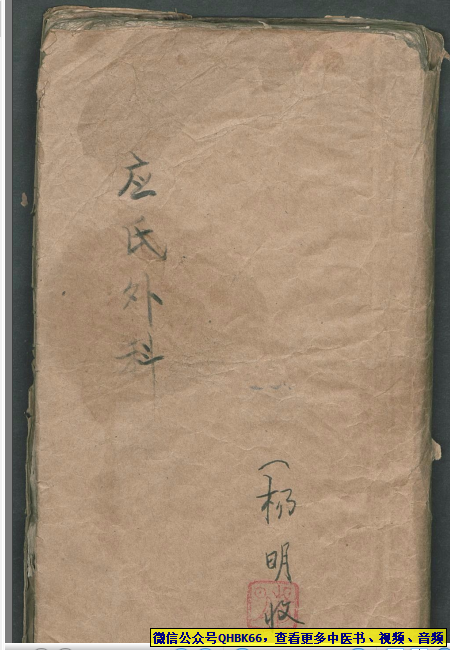 应氏外科
（杨明收
微信公众号QHBK66，查看更多中医书、视频、音频